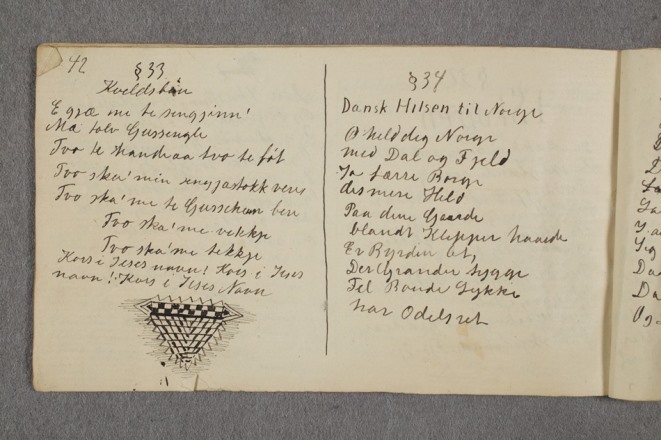 42
§ 33
Kveldsbøn
E gjæ me te sengjinn'
Mæ tolv Gussengle
Tvo te handraa tvo te føt
Tvo ska' min sengjastokk vere
Tvo ska' me te Gusseheim ben
Tvo ska' me vekkje
Tvo ska' me tekkje
Kors i Jeses navn! Kors i Jeses
navn! Kors i Jeses Navn
§ 34
Dansk Hilsen til Norge
O held dig Norge
med Dal og Fjeld
Jo færre Borge
des mere Held
Paa dine Gaarde
blandt Klipper haarde
Er Byrden let,
Der Grander bygge
Til Bonde Lykke
har Odelsret